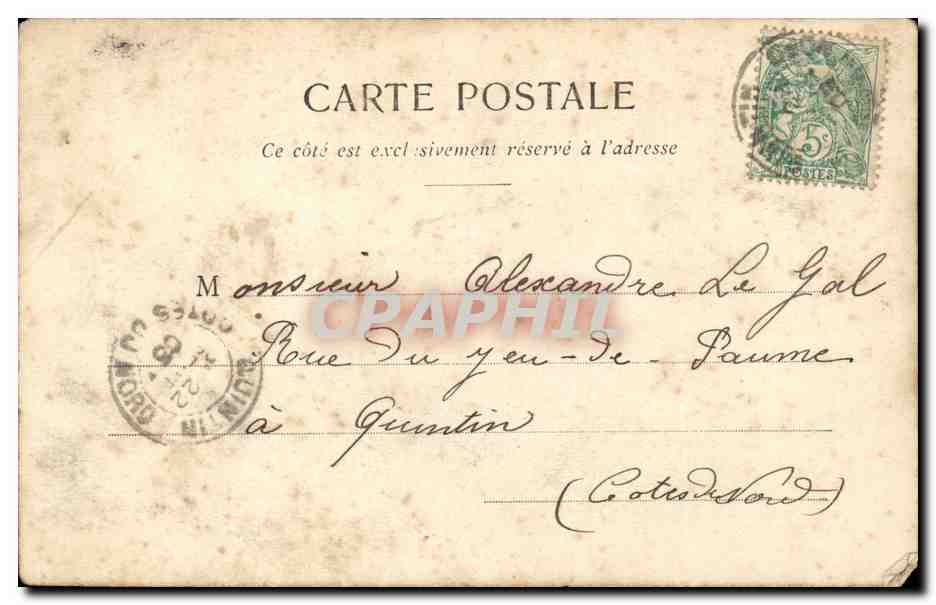 CARTE POSTALE
Ce côté est exclusivement réservé à l'adresse
5c
POSTES
Monsieur Alexandre Le Gal
Rue du Jeu-de-Paume
à Quintin
(Cotes du Nord)
QUINTIN
COTES DU NORD
CPAPHIL